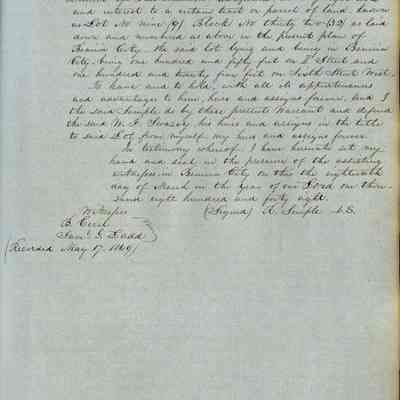 and interest to a certain tract or parcel of land known
as Lot No nine (9) Block No thirty two (32) as laid
down and numbered as above in the present plan of
Benicia City. The said lot lying and being in Benicia
City, being one hundred and fifty feet on Street and
one hundred and twenty five feet on Sixth Street West.
To have and to hold, with all its appurtenances
and advantages to him, heirs and assigns forever. And I
the said Semple do by these presents Warrant and defend
the said his heirs and assigns in the title
to said Lot, from myself my heirs and assigns forever.
In testimony whereof I have hereunto set my
hand and seal in the presence of the assisting
witnesses in Benicia City on this the eighteenth
day of March in the year of our Lord one thou-
sand eight hundred and forty eight.
Witnesses (Signed) R. Semple L.S.
B.
Saml. G. Ladd
(Recorded May 17. 1849)